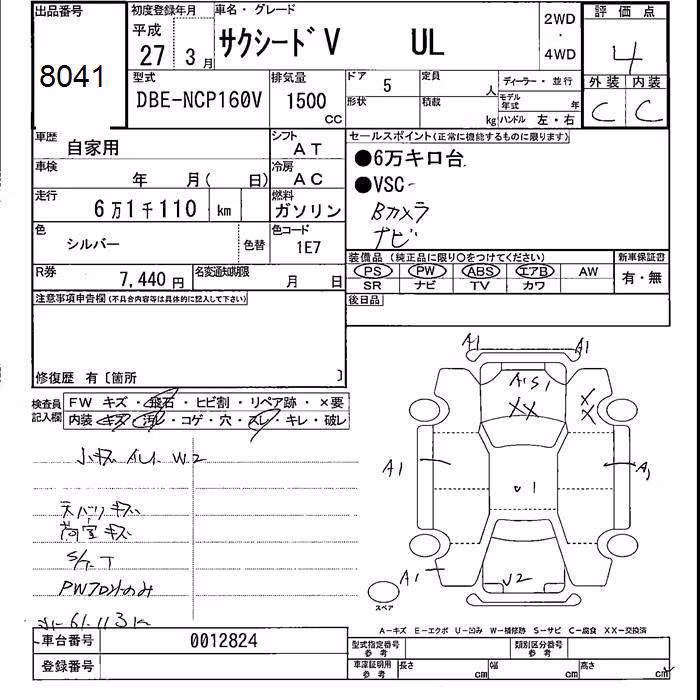 出品番号
8041
初度登録年月
平成
27 3 月
車名・グレード
サクシードV UL
2WD
・
4WD
評価点
4
外装 内装
C C
型式
DBE-NCP160V
排気量
1500
CC
ドア 5
形状
定員 人
積載 kg
ディーラー・並行
モデル年式 年
ハンドル 左・右
車歴 自家用
シフト AT
車検 年 月( 日)
冷房 AC
走行 6万1千110 km
燃料 ガソリン
色 シルバー 色替
色コード 1E7
R券 7,440円
名変通知期限 月 日
セールスポイント(正常に機能するものに限ります)
●6万キロ台
●VSC
Bカメラ
ナビ
装備品 (純正品に限り○をつけてください)
新車保証書
PS PW ABS エアB AW
SR ナビ TV カワ
有・無
後日品
注意事項申告欄(不具合内容等は具体的に記入して下さい)
修復歴 有〔箇所 〕
検査員記入欄
FW キズ・飛石・ヒビ割・リペア跡・×要
内装・キズ・汚レ・コゲ・穴・スレ・キレ・破レ
W2
天バリキズ
荷室キズ
S/T
PWフロントのみ
A1
A1
A1 S1
XX
X
X
A1
A1
1
A1
V2
スペア
A-キズ E-エクボ U-凹み W-補修跡 S-サビ C-腐食 XX-交換済
車台番号 0012824
登録番号
型式指定番号 参考
類別区分番号 参考
車庫証明用 参考
長さ cm
幅 cm
高さ cm